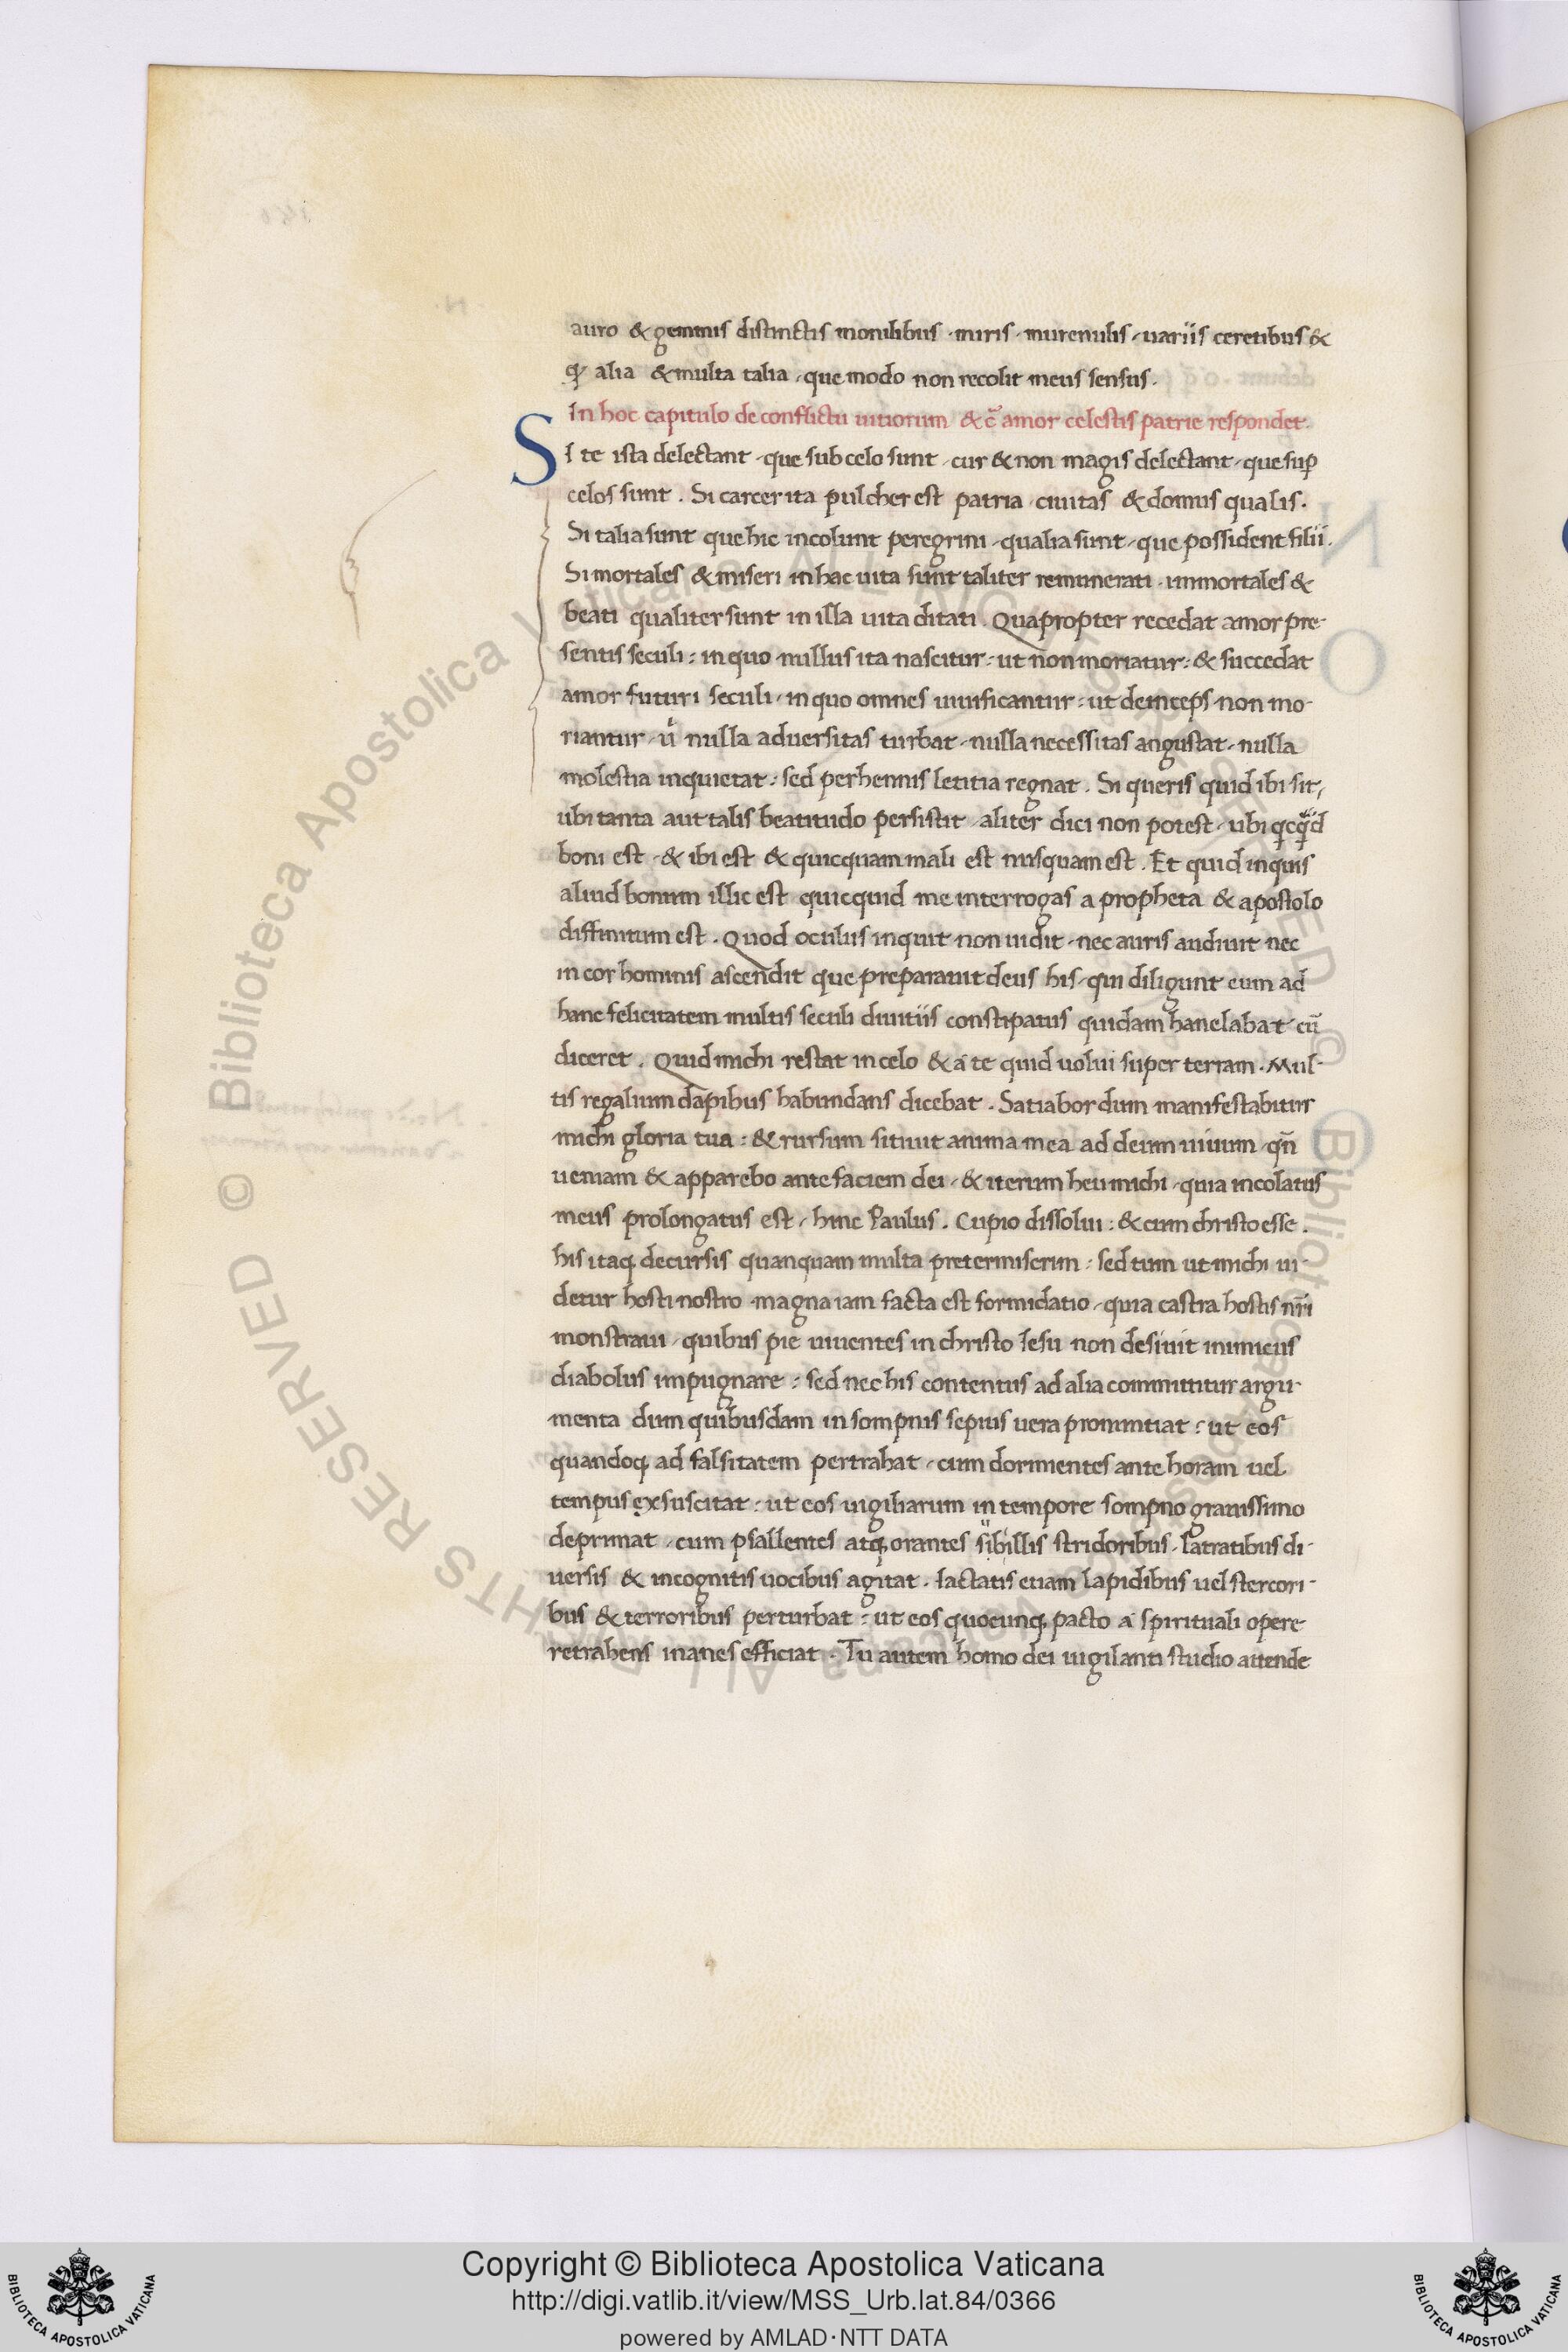 auro & gemmis distinctis monilibus · miris · murenulis · uariis ceretibus &
alia & multa talia · que modo non recolit meus sensus ·
In hoc capitulo de conflictu uitiorum & c̄ amor celestis patrie respondet.
SI te ista delectant · que sub celo sunt · cur & non magis delectant · que sup̄
celos sunt . Si carcer ita pulcher est patria · ciuitas & domus qualis ·
Si talia sunt que hic incolunt peregrini · qualia sunt · que possident filii .
Si mortales & miseri in hac uita sunt taliter remunerati · immortales &
beati qualiter sunt in illa uita ditati . Quapropter recedat amor pre-
sentis seculi : in quo nullus ita nascitur : ut non moriatur : & succedat
amor futuri seculi · in quo omnes uiuificantur : ut deinceps non mo-
riantur · u̇ nulla aduersitas turbat · nulla necessitas angustat · nulla
molestia inquietat : sed perhennis letitia regnat . Si queris quid ibi sit,
ubi tanta aut talis beatitudo persistit · aliter dici non potest · ubi qcqd
boni est · & ibi est & quicquam mali est nusquam est . Et quid inquis
aliud bonum illic est quicquid me interrogas a propheta & apostolo
diffinitum est . Quod oculus inquit non uidit · nec auris audiuit nec
in cor hominis ascendit que preparauit deus his · qui diligunt eum ad
hanc felicitatem multis seculi diuitiis constipatus quidam hanelabat cū
diceret . Quid michi restat in celo & a te quid uolui super terram . Mul-
tis regalium dapibus habundans dicebat . Satiabor dum manifestabitur
michi gloria tua : & rursum sitiuit anima mea ad deum uiuum · qn̄
ueniam & apparebo ante faciem dei · & iterum heu michi · quia incolatus
meus prolongatus est · hinc Paulus . Cupio dissolui : & cum christo esse .
his itaq; decursis quanquam multa pretermiserim : sed tum ut michi ui-
detur hosti nostro magna iam facta est formidatio · quia castra hostis nr̄i
monstraui · quibus pie uiuentes in christo Iesu non desiuit inimicus
diabolus impugnare : sed nec his contentus ad alia committitur argu-
menta dum quibusdam in sompnis sepius uera pronuntiat : ut eos
quandoq; ad falsitatem pertrahat · cum dormientes ante horam uel
tempus exsuscitat : ut eos uigiliarum in tempore sompno grauissimo
deprimat · cum psallentes atq; orantes sibillis stridoribus · latratibus di-
uersis & incognitis uocibus agitat · Iactatis etiam lapidibus uel stercori-
bus & terroribus perturbat : ut eos quocunq; pacto a spirituali opere
retrahens inanes efficiat . Tu autem homo dei uigilanti studio attende
© Biblioteca Apostolica Vaticana ALL RIGHTS RESERVED
Copyright © Biblioteca Apostolica Vaticana
http://digi.vatlib.it/view/MSS_Urb.lat.84/0366
powered by AMLAD·NTT DATA
BIBLIOTECA APOSTOLICA VATICANA
BIBLIOTECA APOSTOLICA VATICANA